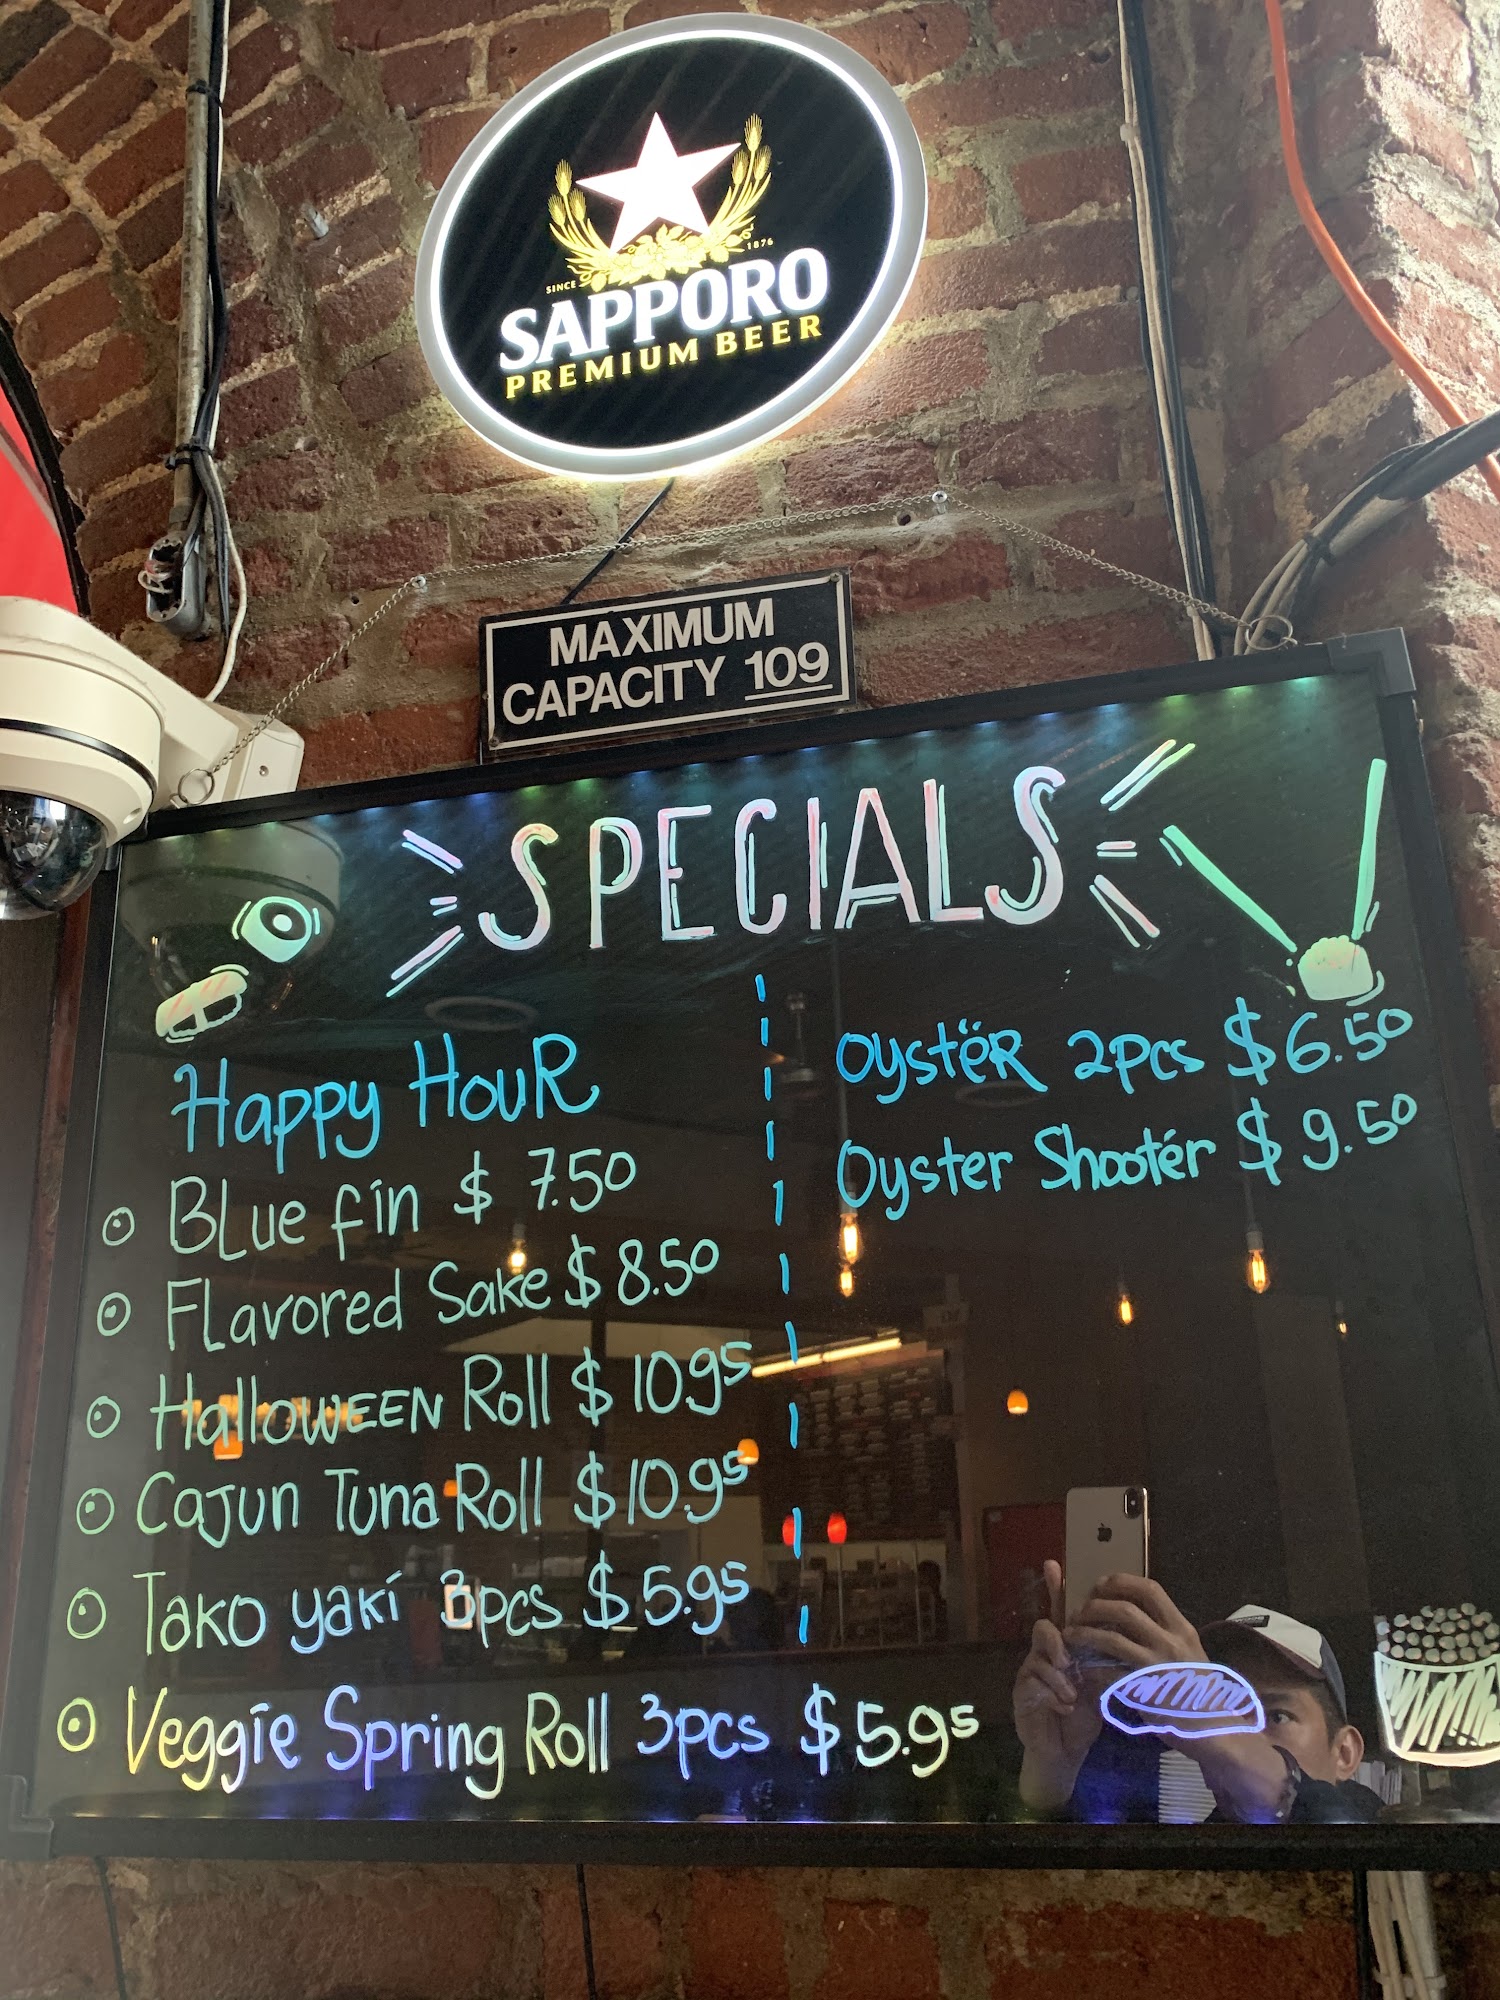 SINCE 1876
SAPPORO
PREMIUM BEER
MAXIMUM
CAPACITY 109
SPECIALS
Happy HouR
BLue fin $ 7.50
Flavored Sake $ 8.50
HalloWEEN Roll $ 10.95
Cajun Tuna Roll $ 10.95
Tako yaki 3pcs $ 5.95
Veggie Spring Roll 3pcs $ 5.95
OystëR 2pcs $ 6.50
Oyster Shootér $ 9.50